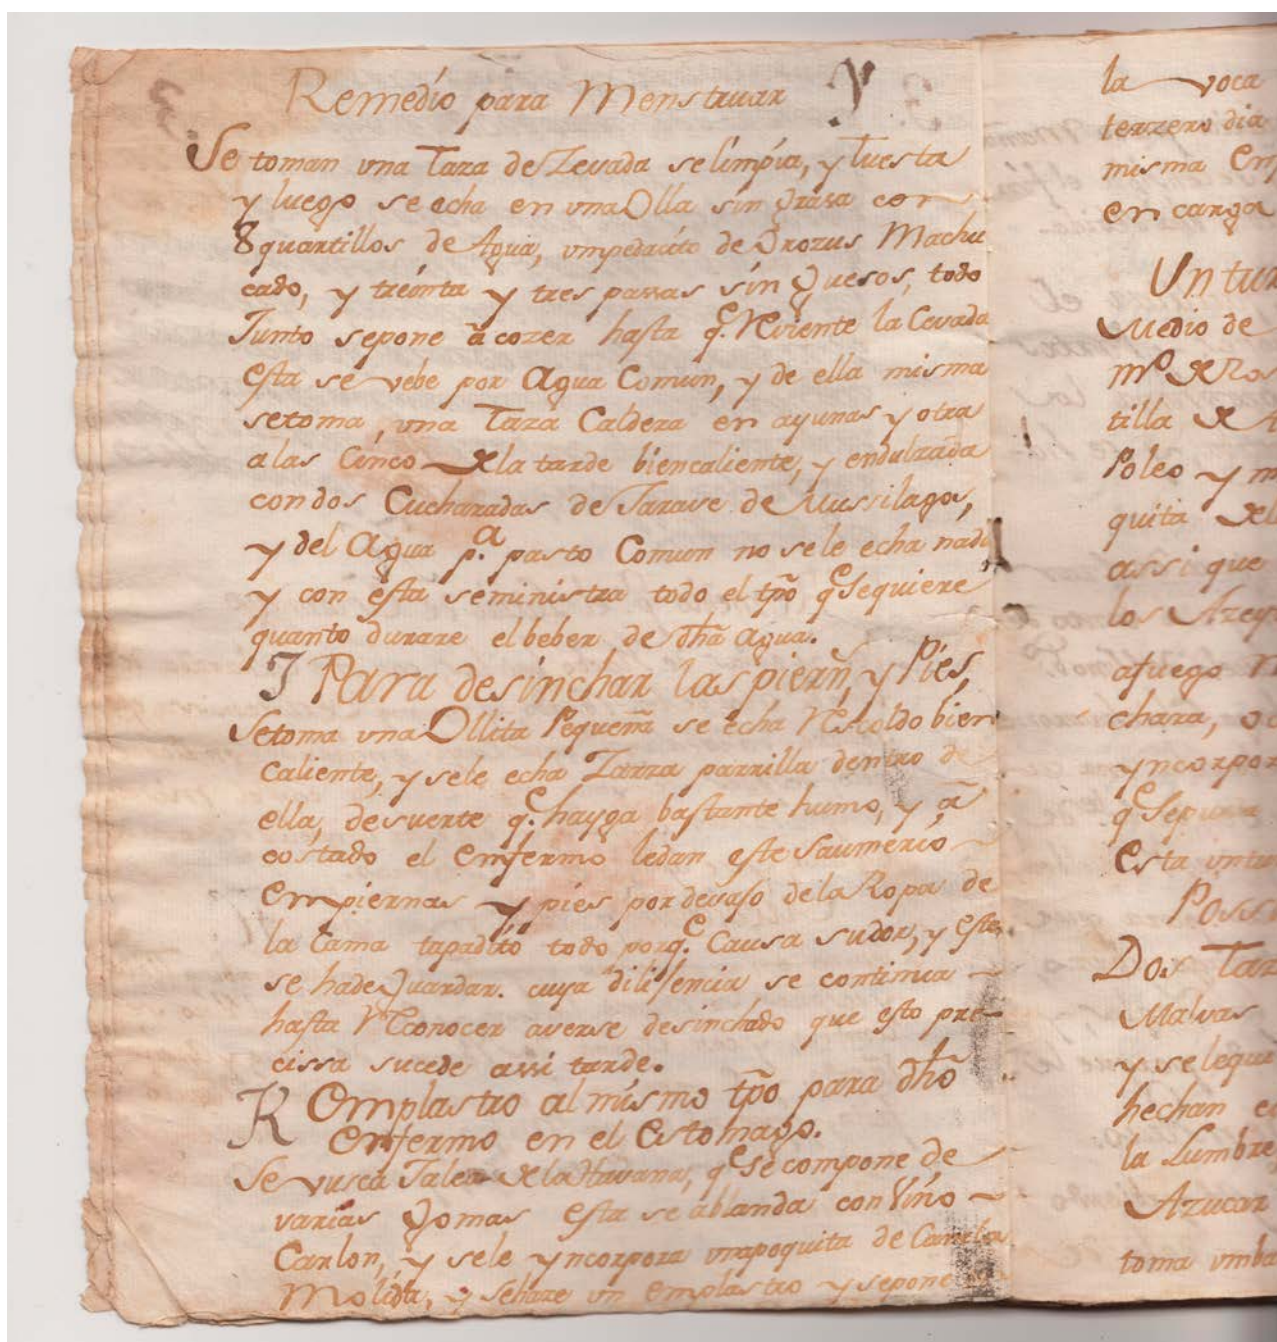 Remedio para Menstruar Y
Se toman vna Taza de Zevada se limpia, y tuesta
y luego se echa en vna Olla sin grasa con
8 quartillos de Agua, vn pedacito de Orozus Machu
cado, y treinta y tres passas sin Quesos, todo
Junto se pone â cozer hasta q.e Rebiente la Cevada
esta se vebe por Agua Comun, y de ella misma
se toma vna Taza Caldera en ayunas y otra
a las Cinco de la tarde bien caliente, y endulzada
con dos Cucharadas de Jarave de Mussilagos,
y del Agua p.a pasto Comun no se le echa nada
y con esta se ministra todo el tpõ q.e Se quiere
quanto durare el beber de dha agua.
J Para desinchar las piern.s, y Pies,
Se toma vna Ollita Pequeña se echa Rescoldo bien
caliente, y se le echa Zarza parrilla dentro de
ella, de suerte q.e hayga bastante humo, y â
costado el enfermo le dan este Saumerio
em piernas y pies por devajo de la Ropa de
la Cama tapadito todo porq.e Causa sudor, y este
se ha de Guardar. cuya diligencia se continua
hasta Reconocer averse desinchado que esto pre-
cissa sucede assi tarde.
K Emplastro al mismo tpõ para dho
enfermo en el Estomago.
Se vusca de la Havana, q.e se compone de
varias Gomas esta se ablanda con Vino
Carlon, y se le yncorpora vna poquita de Canela
Molida, y se haze vn emplastro y se pone
la voca
terzero dia
misma
encarga
Medio de
tilla de
Poleo y
quita
assi que
los
afuego
chara,
q.e Se pueda
esta
Dos
Malvas
y se le
hechan
la Lumbre
Azucar
toma